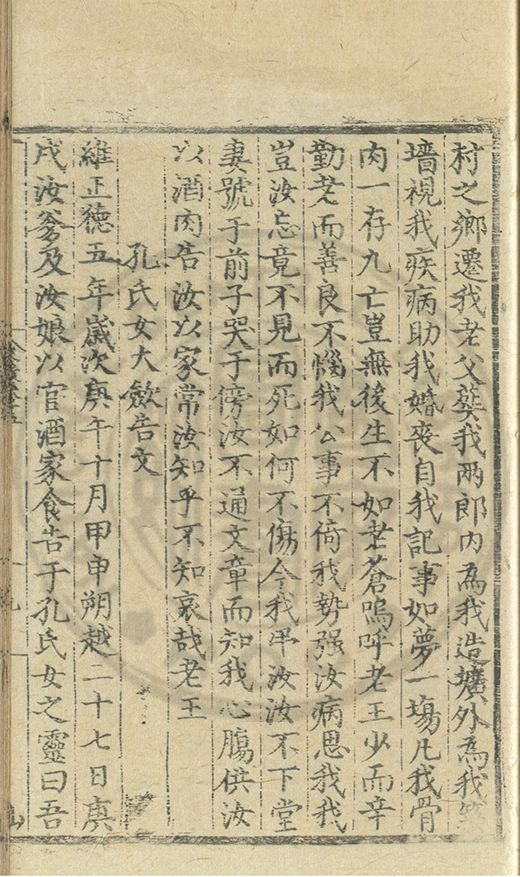 村之鄉遷我老父葬我两郎内為我造壙外為我
墻視我疾病助我婚丧自我記事如夢一塲凡我骨
肉一存九亡豈無後生不如老蒼嗚呼老王少而辛
勤老而善良不惱我公事不倚我勢强汝病思我我
豈汝忘竟不見而死如何不傷今我弔汝汝不下堂
妻號于前子哭于傍汝不通文章而知我心膓供汝
以酒肉告汝以家常汝知乎不知哀哉老王
孔氏女大斂告文
維正德五年歲次庚午十月甲申朔越二十七日庚
戌汝爹及汝娘以官酒家食告于孔氏女之靈曰吾